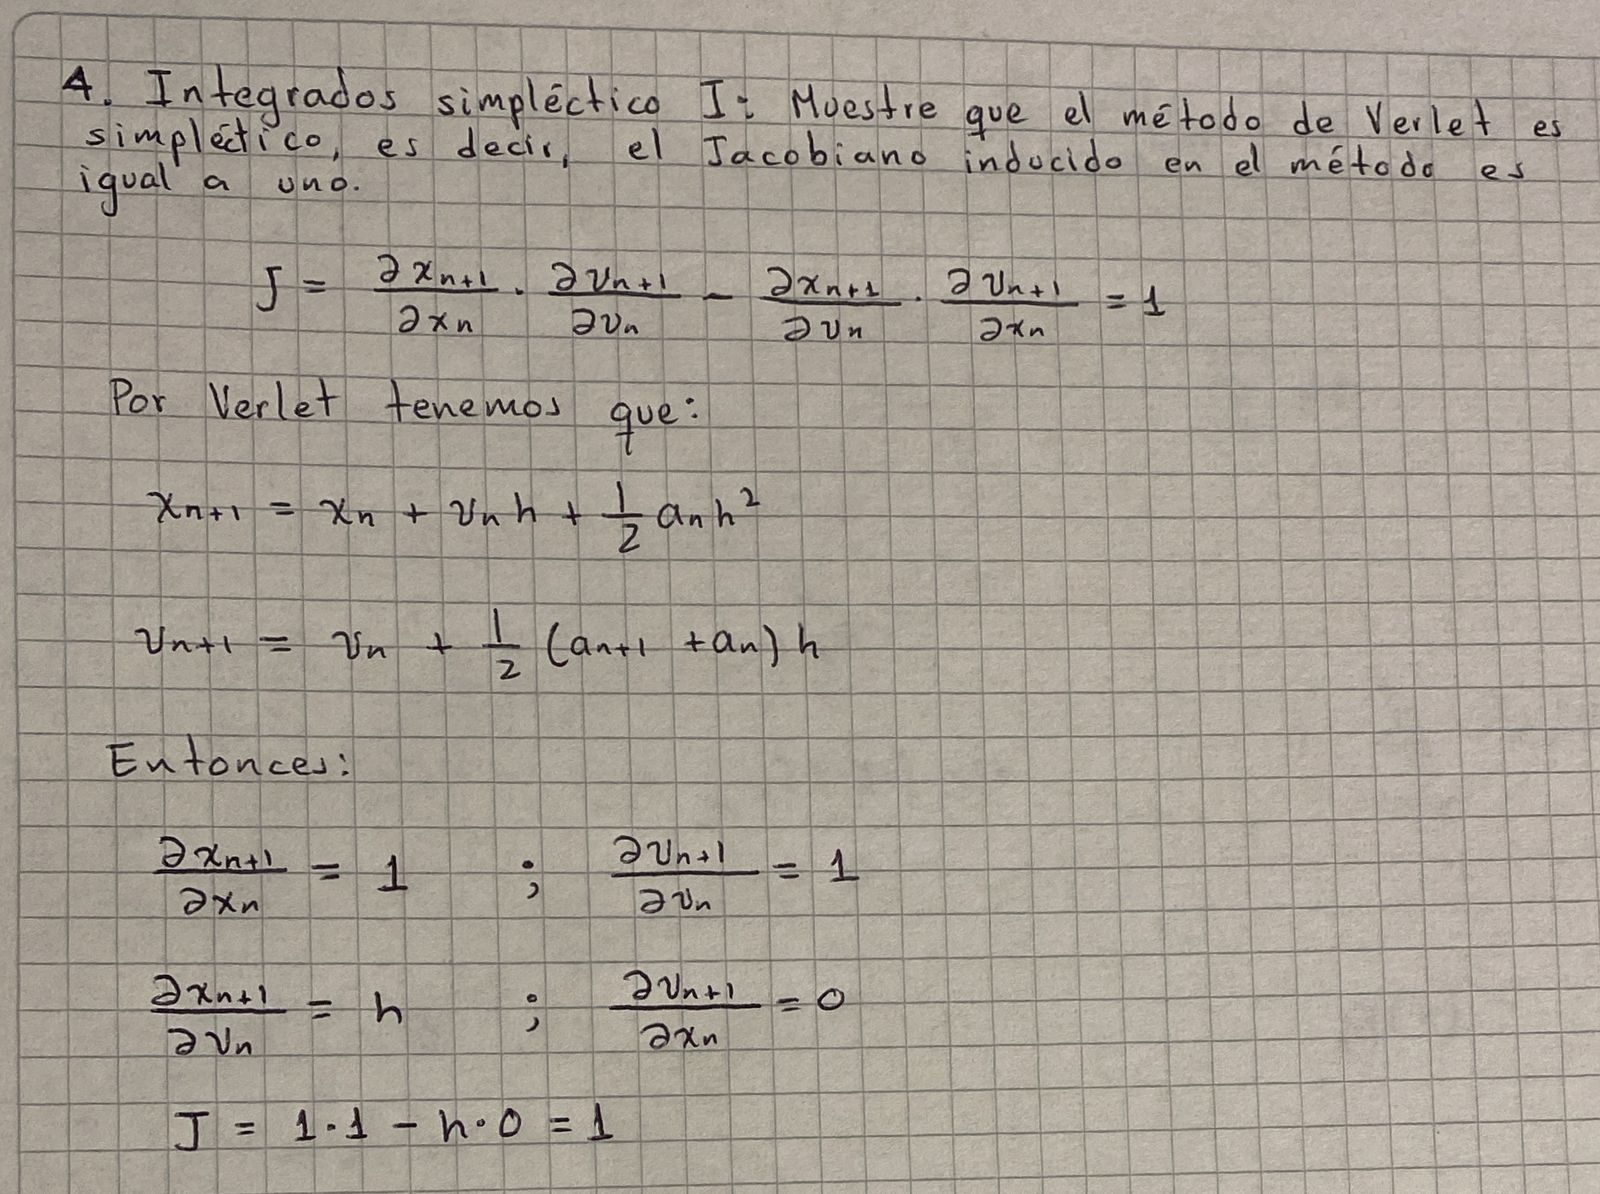 4. Integrados simpléctico I: Muestre que el método de Verlet es
simpléctico, es decir, el Jacobiano inducido en el método es
igual a uno.
J = ∂x_{n+1}/∂x_n · ∂v_{n+1}/∂v_n − ∂x_{n+1}/∂v_n · ∂v_{n+1}/∂x_n = 1
Por Verlet tenemos que:
x_{n+1} = x_n + v_n h + 1/2 a_n h²
v_{n+1} = v_n + 1/2 (a_{n+1} + a_n) h
Entonces:
∂x_{n+1}/∂x_n = 1 ; ∂v_{n+1}/∂v_n = 1
∂x_{n+1}/∂v_n = h ; ∂v_{n+1}/∂x_n = 0
J = 1·1 − h·0 = 1